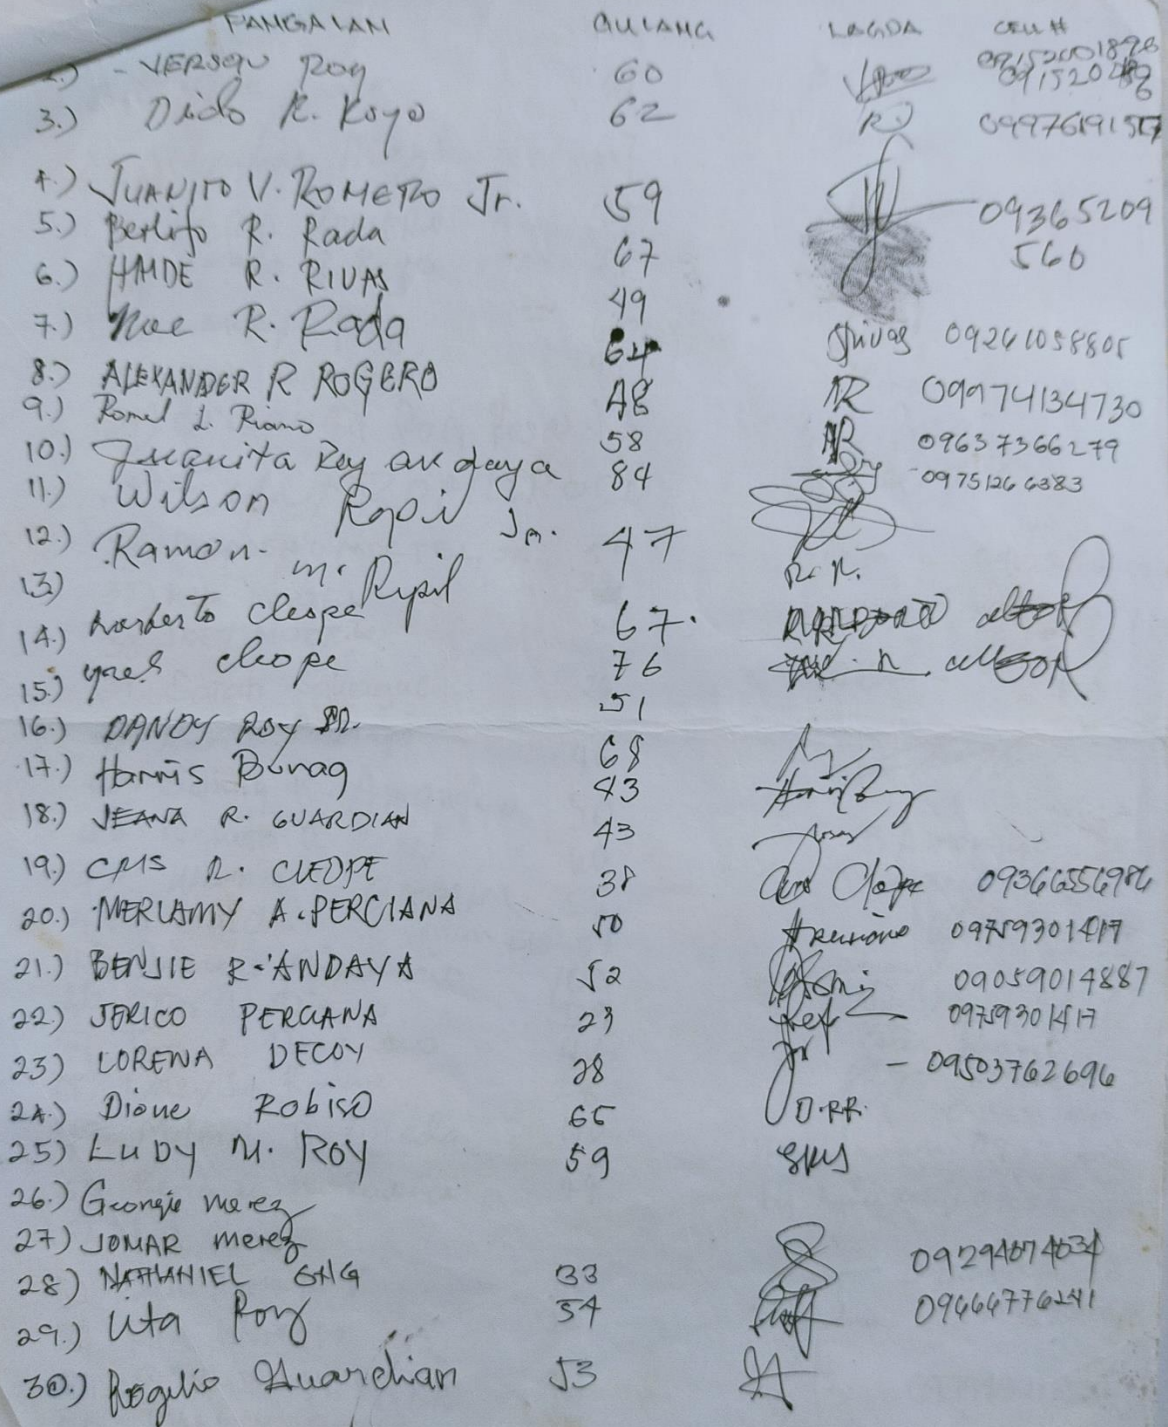 PANGALAN GULANG LAGDA CELL #
2.) - VERSON Roy 60 09152001896
3.) Dido R. Royo 62 RJ 09976191517
4.) JUANITO V. ROMERO Jr. 59 09365209
5.) Berlito R. Rada 67 560
6.) HAIDE R. RIVAS 49
7.) Noe R. Rada 64 Rivas 09261058805
8.) ALEXANDER R ROGERO 48 AR 09974134730
9.) Romel L. Riano 58 AR 09637366279
10.) Juanita Roy andaya 84 09751266383
11.) Wilson Rapil Jr. 47
12.) Ramon M. Rapil R.R.
13)
14.) Norberto Cleope 67.
15.) Cleope 76
51
16.) DANDY ROY SR. 68
17.) Harris Bunag 43
18.) JEANA R. GUARDIAN 43
19.) CRIS R. CLEOPE 38 09366556986
20.) MERLAMY A. PERCIANA 50 09759301417
21.) BENJIE R. ANDAYA 52 09059014887
22.) JERICO PERCIANA 23 09759301417
23) LORENA DECOY 28 - 09503762696
24.) Dione Robiso 65 D.RR.
25) LUDY M. ROY 59
26.) Georgie Merez
27) JOMAR merez
28) NATHANIEL ONG 33 09294674634
29.) Lita Roy 54 09666776241
30.) Rogelio Guardian 53